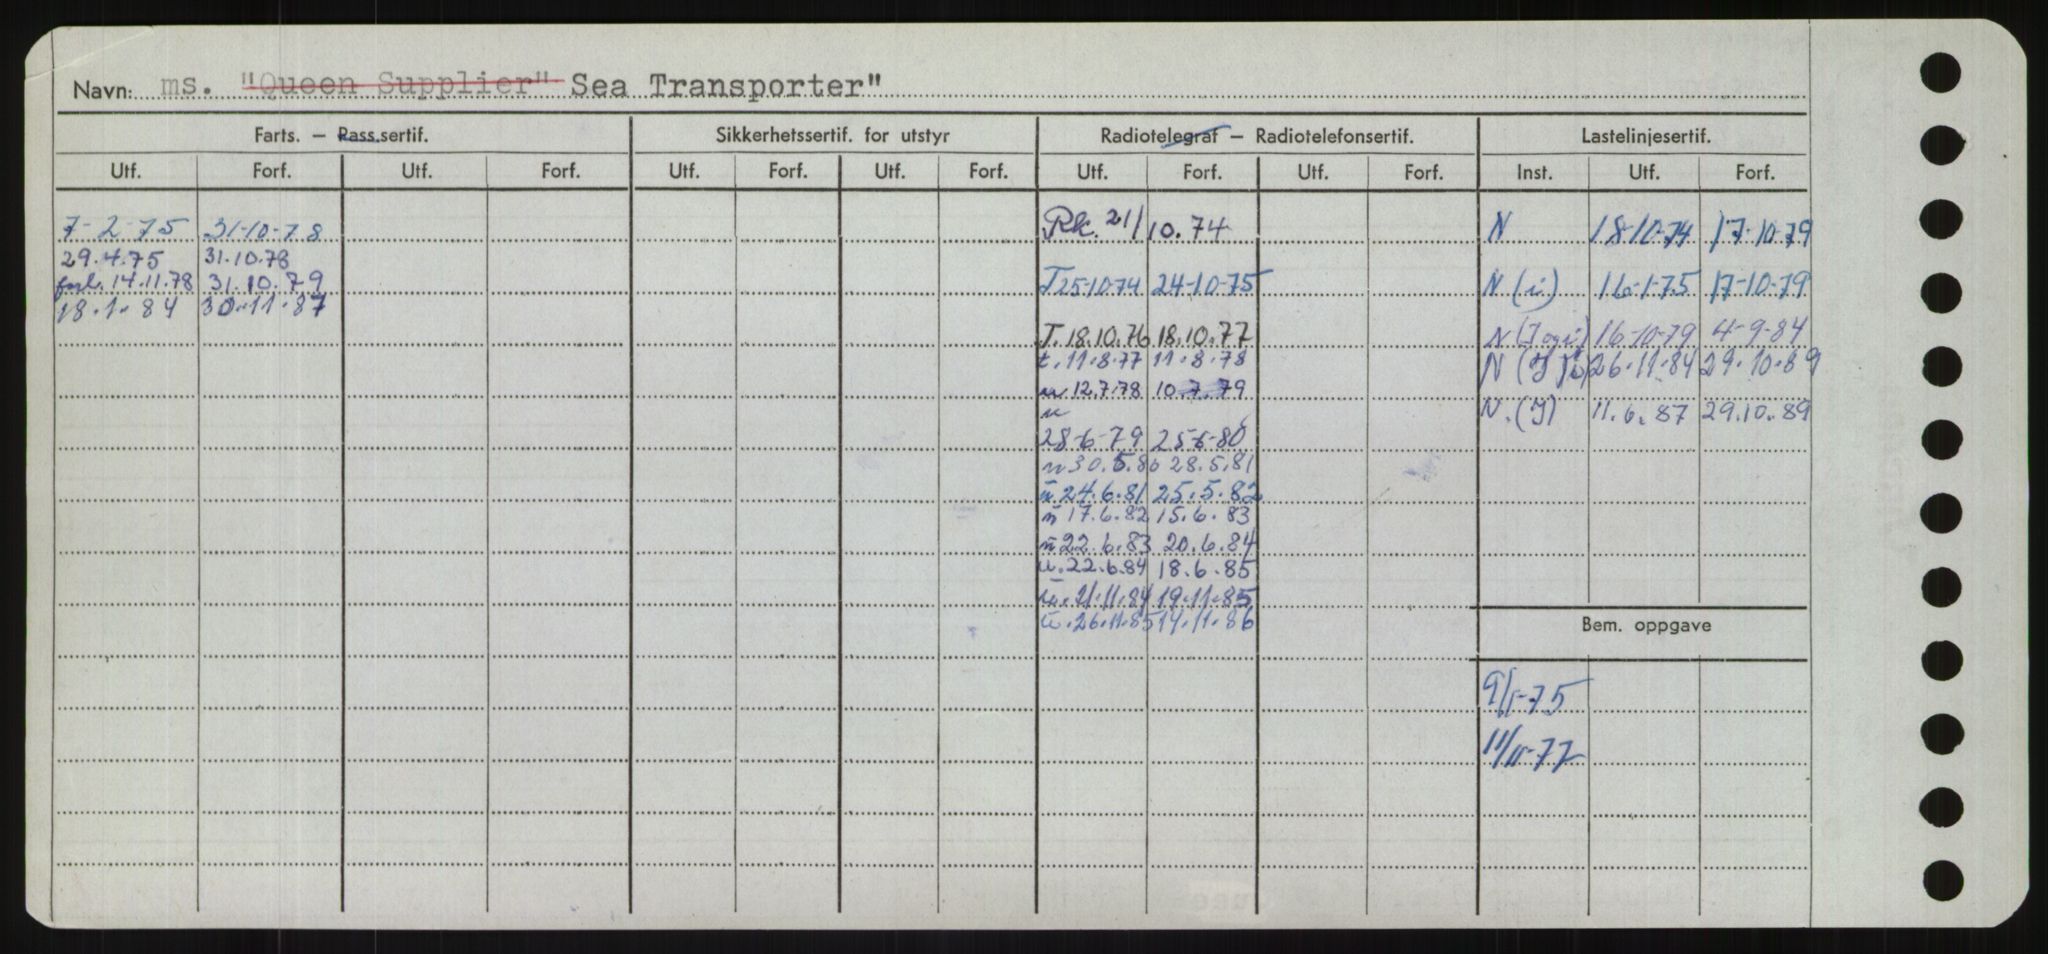 Navn: ms. "Queen Supplier" Sea Transporter"
Farts. — Pass.sertif. Sikkerhetssertif. for utstyr Radiotelegraf — Radiotelefonsertif. Lastelinjesertif.
Utf. Forf. Utf. Forf. Utf. Forf. Utf. Forf. Utf. Forf. Utf. Forf. Inst. Utf. Forf.
7-2-75 31-10-78 Rk. 21/10.74 N 18-10-74 17-10-79
29.4.75 31.10.78
forl. 14.11.78 31.10.79 T 25-10-74 24-10-75 N (i) 16-1-75 17-10-79
18.1.84 30.11.87
T. 18.10.76 18.10.77 N (J og i) 16-10-79 4-9-84
t. 11.8.77 11.8.78 N (J 26.11.84 29.10.89
u 12.7.78 10.7.79
u N. (J) 11.6.87 29.10.89
28-6-79 25-6-80
u 30.5.80 28.5.81
u 24.6.81 25.5.82
u 17.6.82 15.6.83
u 22.6.83 20.6.84
u. 22.6.84 18.6.85
u. 21.11.84 19.11.85
u. 26.11.85 14.11.86
Bem. oppgave
9/1-75
11/11-77